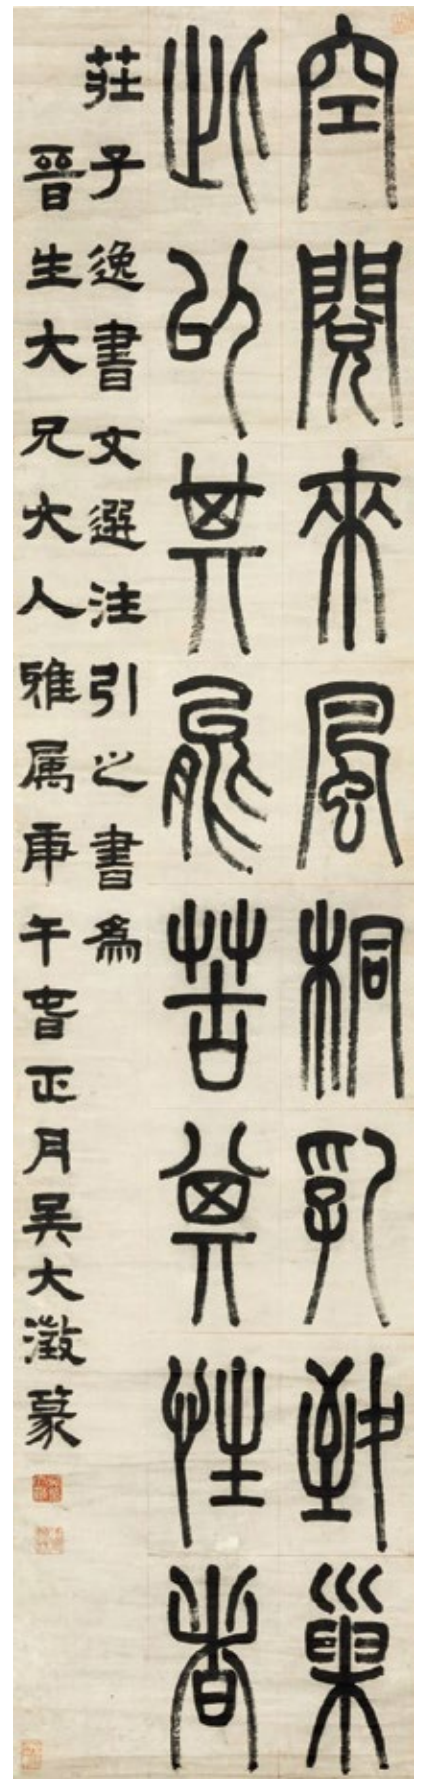 空閱來風桐乳致巢
此以其能苦其性者
莊子逸書文選注引之書爲
晉生大兄大人雅属庚午旾正月吳大澂篆